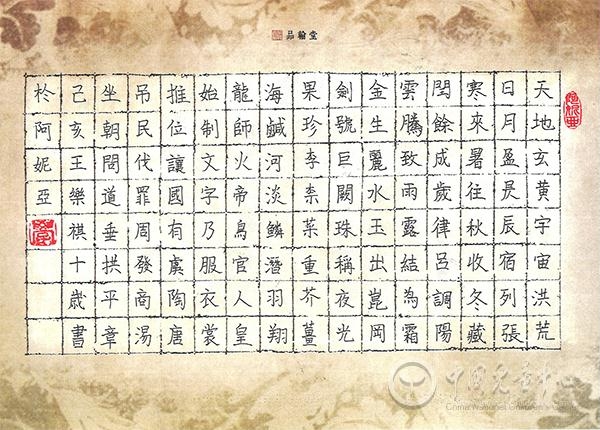 品翰堂
天地玄黃宇宙洪荒
日月盈昃辰宿列張
寒來暑往秋收冬藏
閏餘成歲律呂調陽
雲騰致雨露結為霜
金生麗水玉出崑岡
劍號巨闕珠稱夜光
果珍李柰菜重芥薑
海鹹河淡鱗潛羽翔
龍師火帝鳥官人皇
始制文字乃服衣裳
推位讓國有虞陶唐
吊民伐罪周發商湯
坐朝問道垂拱平章
己亥王樂祺十歲書
於阿妮亞
中国儿童中心
China National Children's Center